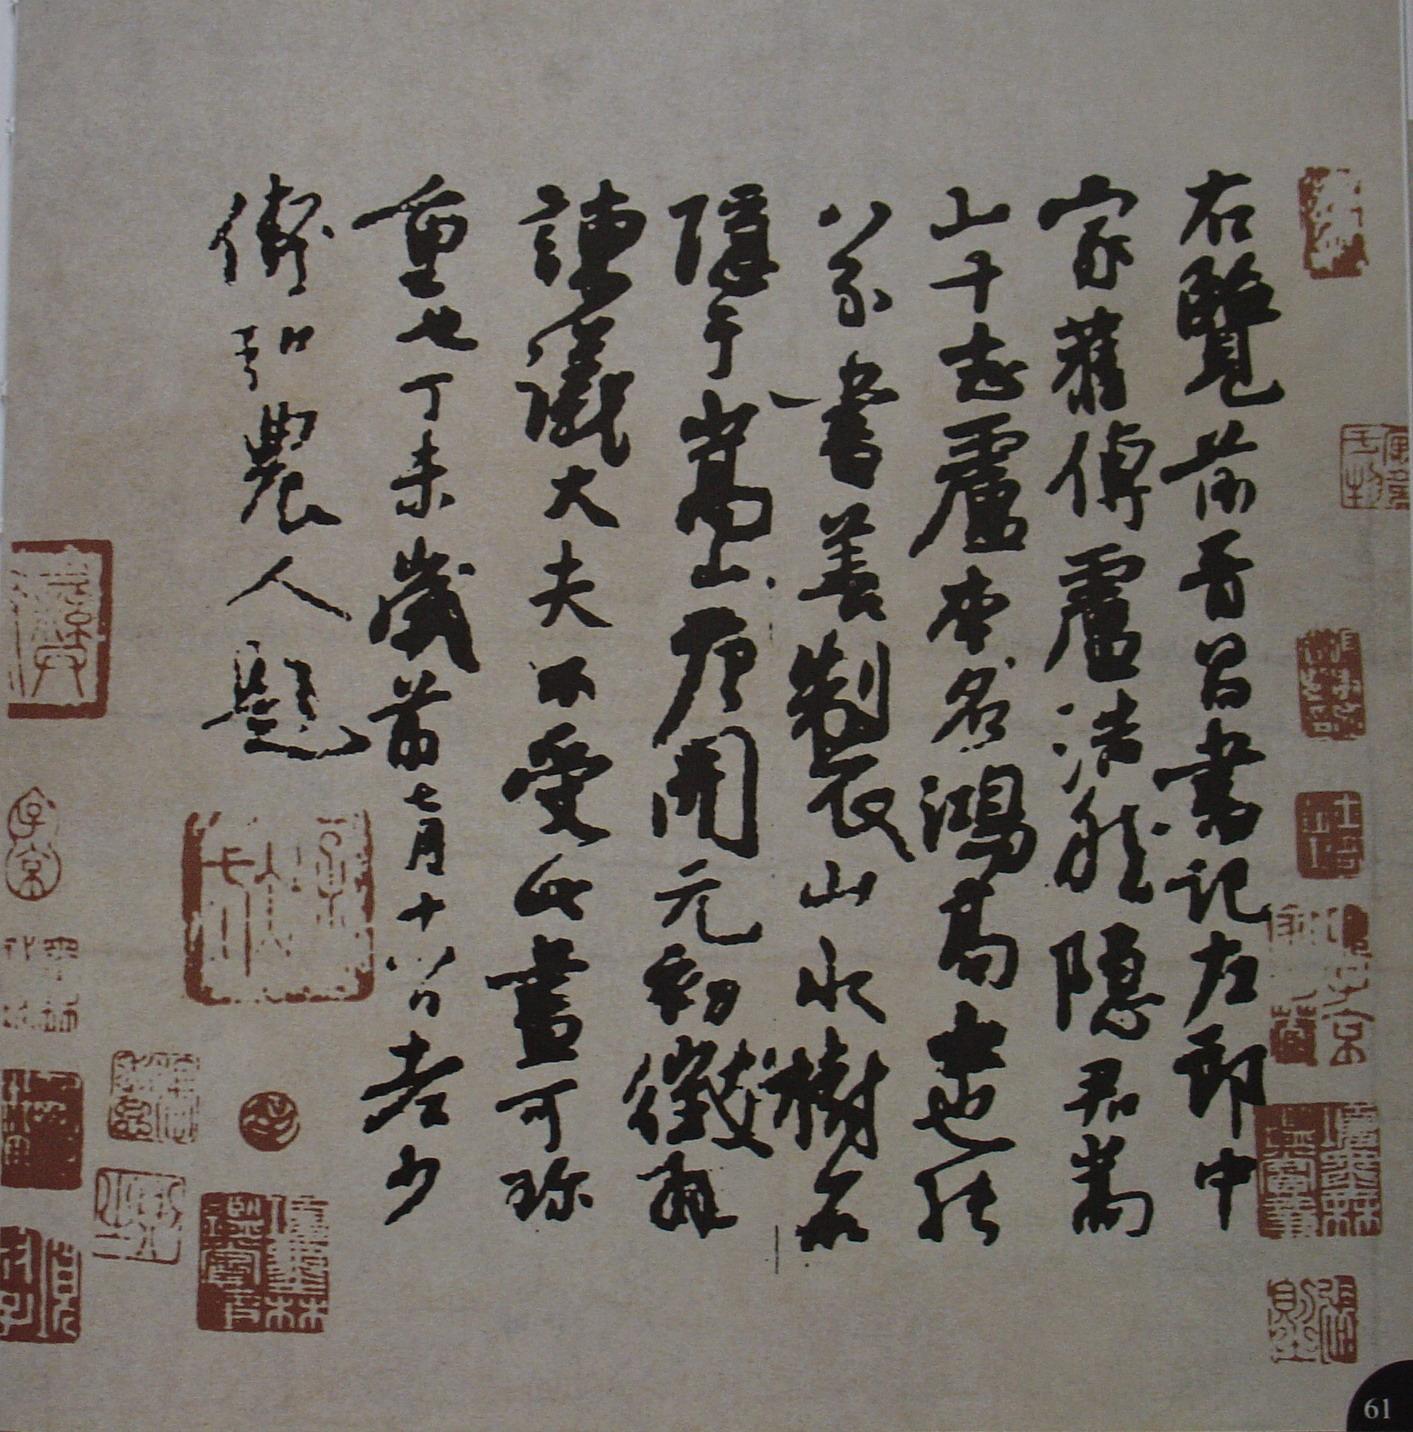 右覽前晉昌書記左郎中
家舊傳盧浩然隱居嵩
山十志盧本名鴻高士也能
八分書善製山水樹石
隱于嵩山唐開元初徵拜
諫議大夫不受此畫可珍
重也丁未歲前七月十八日老少
傅弘農人題
子京
61